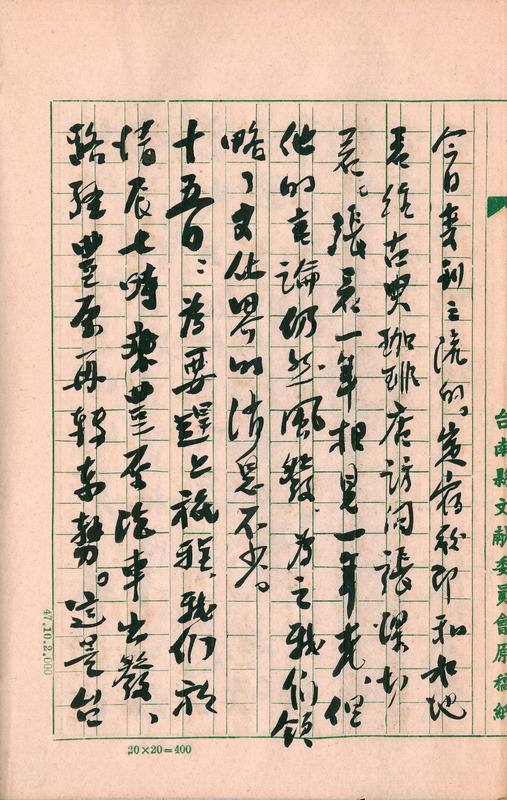 今日受到主流的。安宿後即和水地
君往古典珈琲店訪問張深切
君。張君一年相見一年老、但
他的言論仍然風發、為之我們領
略了文化界的消息不少。
十五日：為要趕上旅程、我們於
清辰七時乘豐原汽車出發、
路經豐原再轉車勢。這是台
台南縣文献委員會原稿紙
47.10.2,000
20×20=400